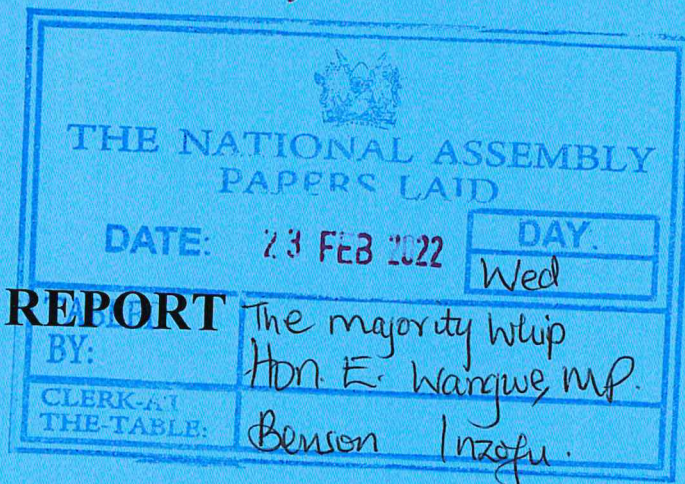 THE NATIONAL ASSEMBLY
PAPERS LAID
DATE: 23 FEB 2022 DAY.
Wed
REPORT
TABLED BY: The majority Whip
Hon. E. Wangwe, MP.
CLERK-AT THE-TABLE: Benson Inzofu.